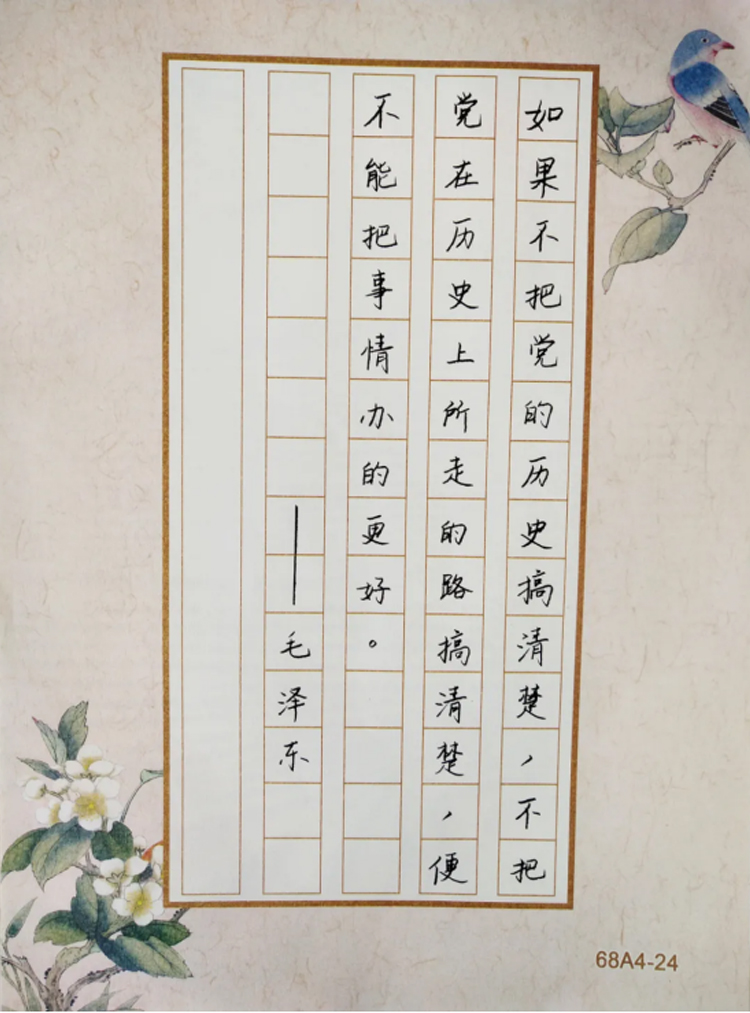 如果不把党的历史搞清楚，不把
党在历史上所走的路搞清楚，便
不能把事情办的更好。
——毛泽东
68A4-24